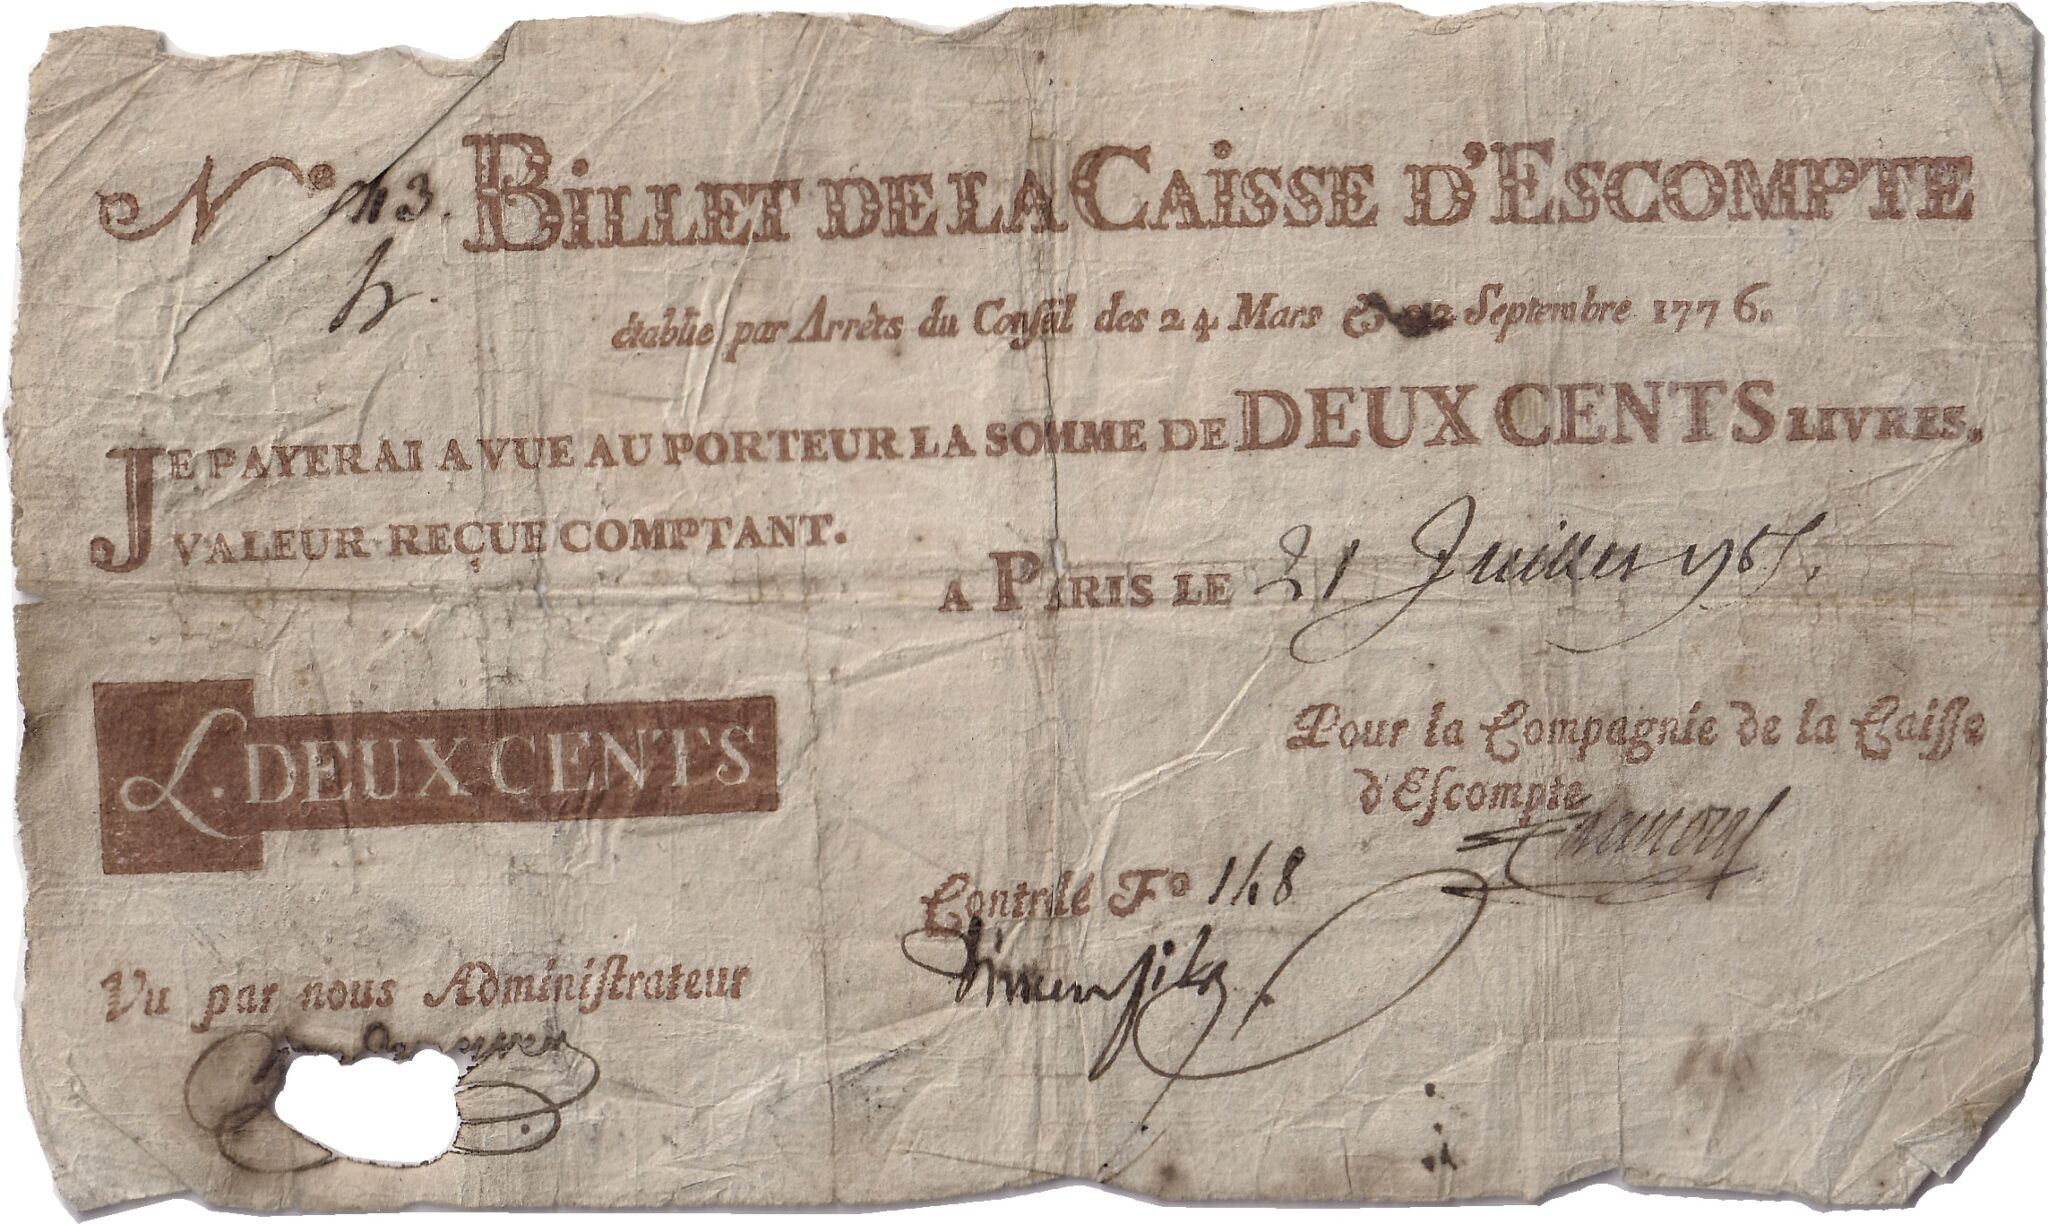 N.º 3. BILLET DE LA CAISSE D'ESCOMPTE
h.
établie par Arrêts du Conſeil des 24 Mars & 22 Septembre 1776.
JE PAYERAI A VUE AU PORTEUR LA SOMME DE DEUX CENTS LIVRES.
VALEUR REÇUE COMPTANT.
A PARIS LE 21 Juillet
L. DEUX CENTS
Pour la Compagnie de la Caiſſe
d'Eſcompte
Contrôlé Fº 148
Vu par nous Adminiſtrateur